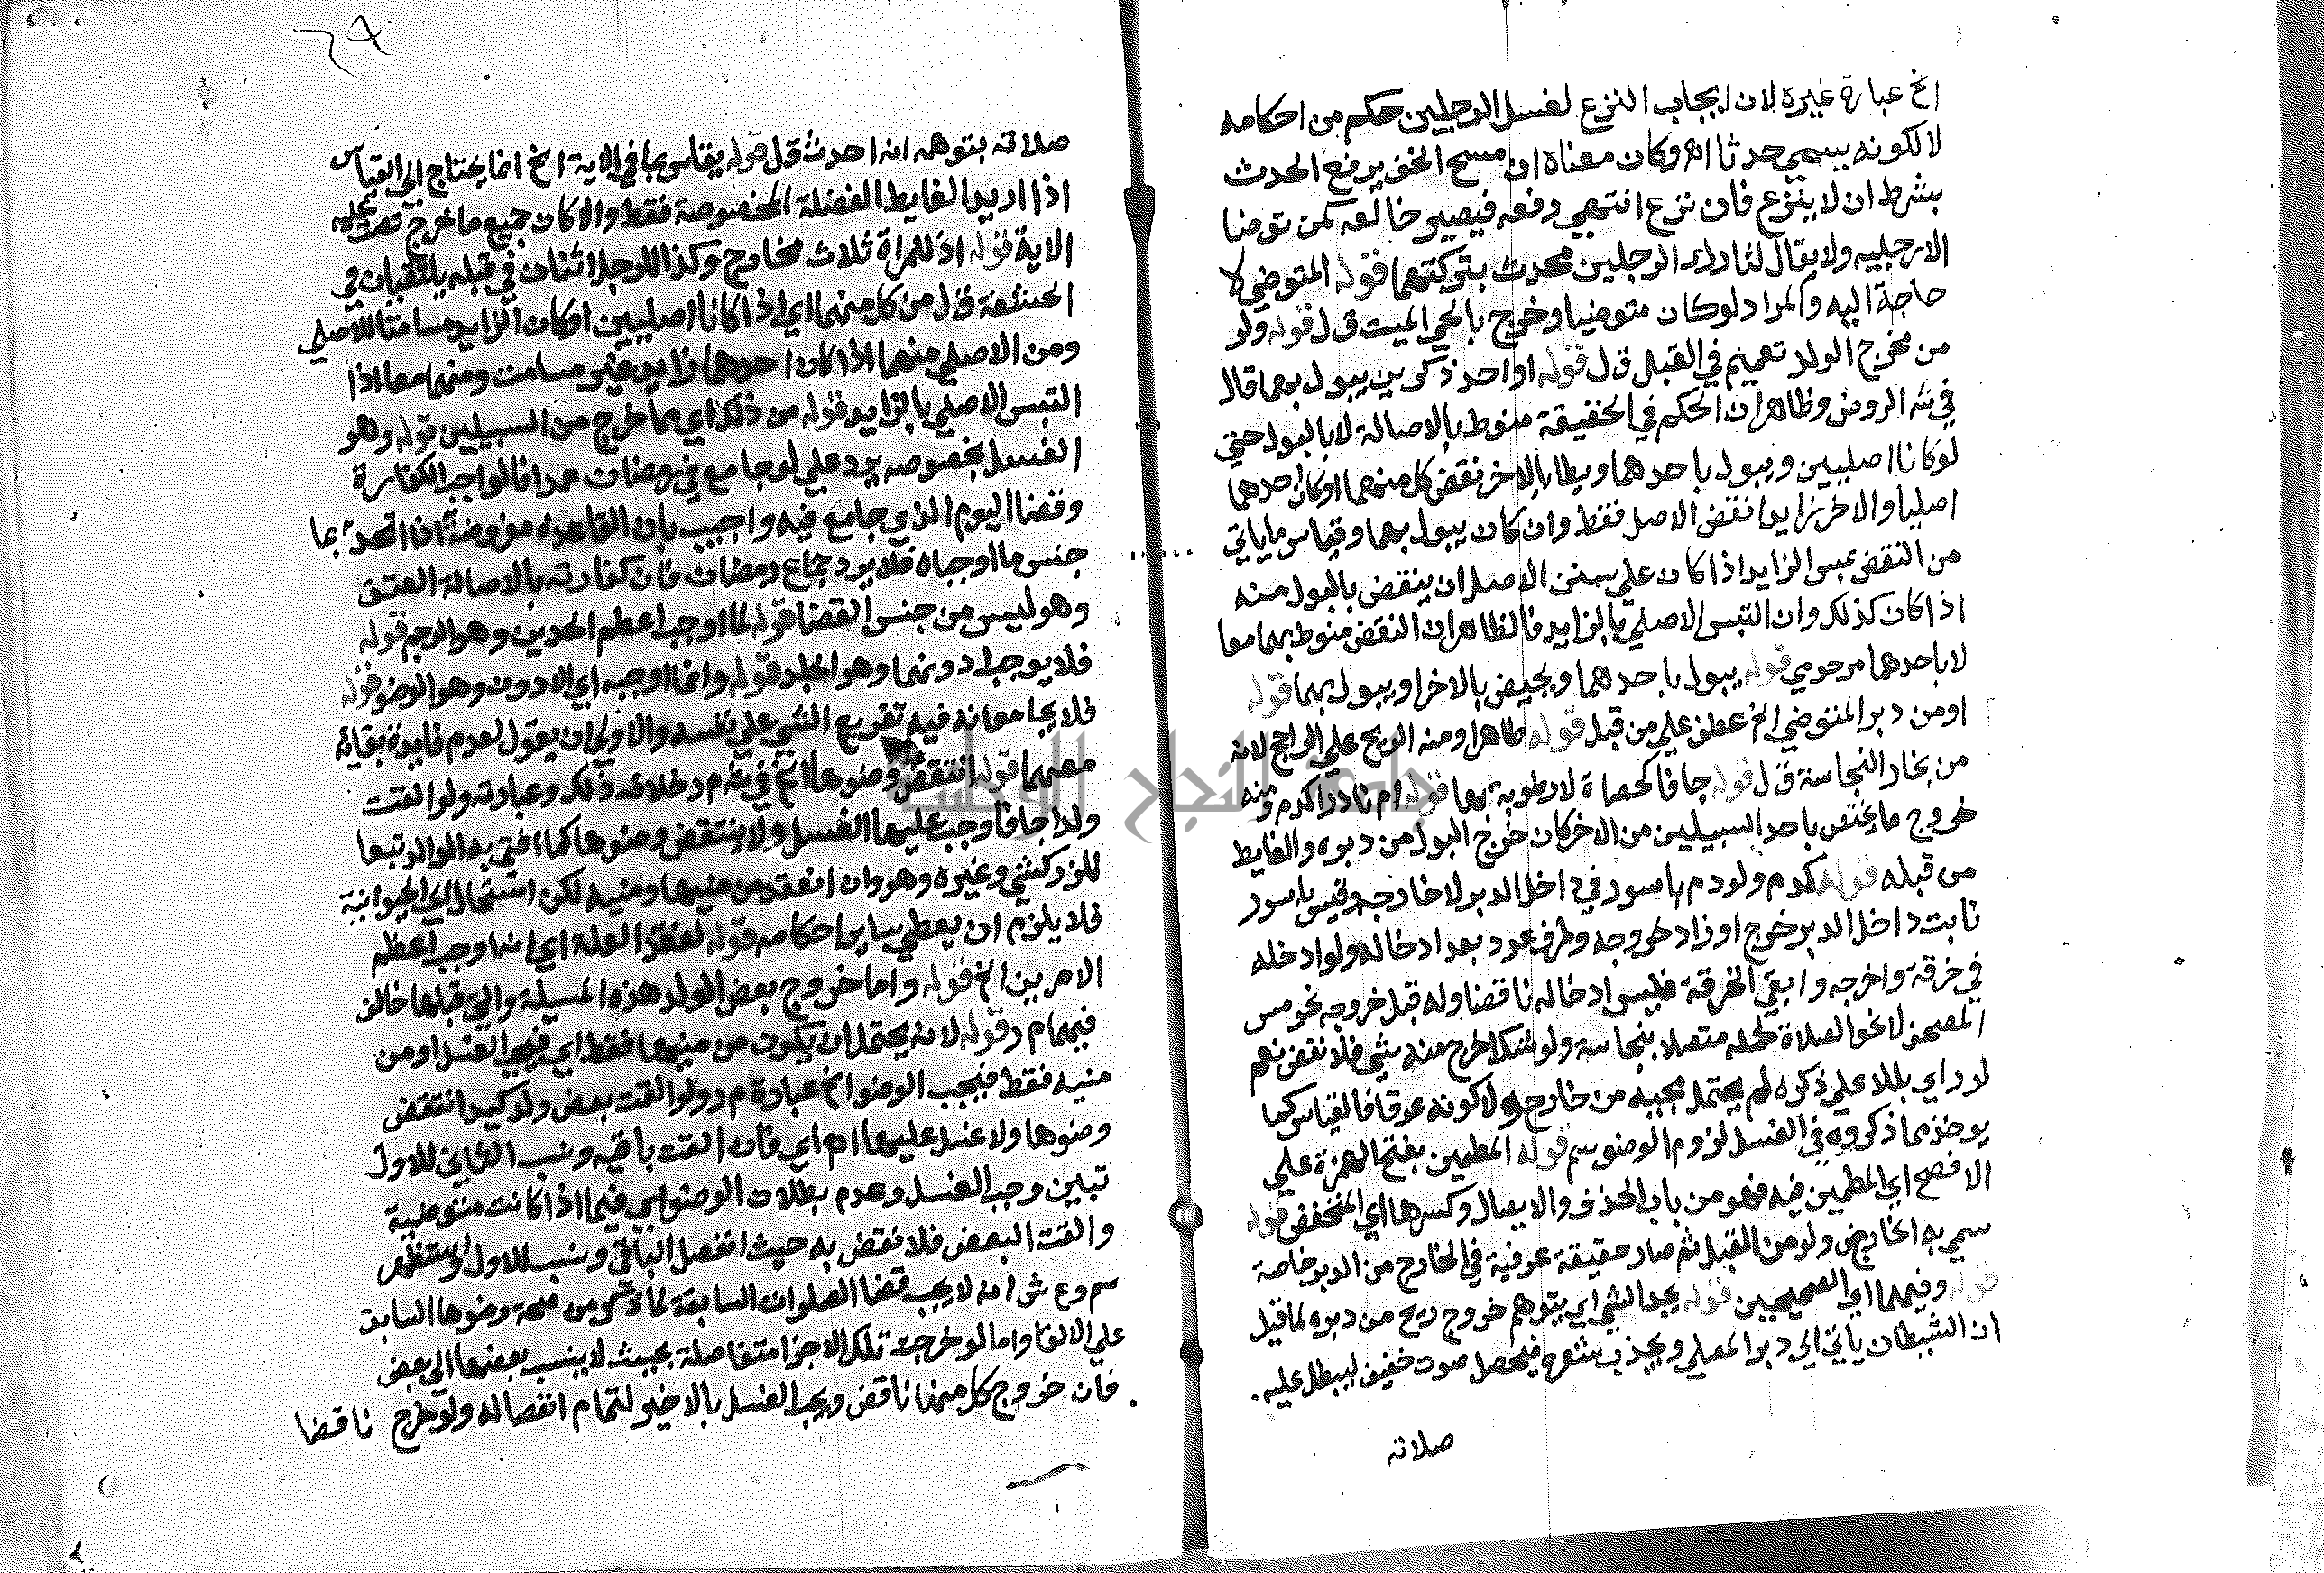 الخ عبارة غيره لان ايجاب النزع لغسل الرجلين حكم من احكامه
لا لكونه يسمي حدثا اه وكان معناه ان مسح الخف يرفع الحدث
بشرط ان لا ينزع فان نزع انتهي رفعه فيصير خالعه كمن توضا
الا رجليه ولا يقال لتارك الرجلين محدث بتركتهما قوله المتوضي لا
حاجة اليه والمراد لو كان متوضيا وخرج بالحي الميت ق ل قوله ولو
من مخرج الولد تعميم في القبل ق ل قوله او احد ذكرين يبول بهما قال
في شه الروض وظاهر ان الحكم في الحقيقة منوط بالاصالة لا بالبول حتي
لو كانا اصليين ويبول باحدهما ويطا بالاخر نقض كل منهما او كان احدهما
اصليا والاخر زايدا نقض الاصل فقط وان كان يبول بهما وقياس ما ياتي
من النقض بمس الزايد اذا كان علي سنن الاصل ان ينقض بالبول منه
اذا كان كذلك وان التبس الاصلي بالزايد فالظاهر ان النقض منوط بهما معا
لا باحدهما مرحومي قوله يبول باحدهما ويحيض بالاخر او يبول بهما قوله
او من دبر المتوضي الخ عطف علي من قبل قوله طاهرا ومنه الريح علي الراجح لانه
من بخار النجاسة ق ل قوله جافا كحصاة لا رطوبة بها قوله ام نادرا كدم ومنه
خروج ما يختص باحد السبيلين من الاخر كان خرج البول من دبره والغايط
من قبله قوله كدم ولو دم باسور في داخل الدبر لا خارجه وقيس باسور
نابت داخل الدبر خرج او زاد خروجه وطرف عود بعد ادخاله ولو ادخله
في خرقة واخرجه وابقي الخرقة فليس ادخاله ناقضا وله قبل خروجه نحو مس
المصحف لا نحو الصلاة لحمله متصلا بنجاسة ولو شك اخرج منه شي فلا نقض نعم
لو راي بللا علي ذكره لم يحتمل مجيئه من خارج ولا كونه عرقا فالقياس كما
يوخذ مما ذكروه في الغسل لزوم الوضو سم قوله المطمين بفتح الهمزة علي
الافصح اي المطمين فيه فهو من باب الحذف والايصال وكسرها اي المنخفض قوله
سمي به الخارج ولو من القبل ثم صار حقيقة عرفية في الخارج من الدبر خاصة
قوله وفيهما اي الصحيحين قوله يجد الشي اي يتوهم خروج ريح من دبره لما قيل
ان الشيطان ياتي الي دبر المصلي ويجذب شعره فيحصل صوت خفيف ليبطل عليه
صلاته
٢٩
صلاته بتوهمه انه احدث ق ل قوله يقاس بما في الاية الخ انما يحتاج الي القياس
اذا اريد الغايط الفضلة المخصوصة فقط والا كان جميع ما خرج
الاية قوله اذ للمراة ثلاث مخارج وكذا للرجل اثنان في قبله يلتقيان في
الحشفة ق ل من كل منهما اي اذا كانا اصليين او كان الزايد مسامتا للاصلي
ومن الاصلي منهما اذا كان احدهما زايد غير مسامت ومنهما معا اذا
التبس الاصلي بالزايد قوله من ذلك اي مما خرج من السبيلين قوله وهو
الغسل بخصوصه يرد علي لو جامع في رمضان عمدا فالواجب الكفارة
وقضا اليوم الذي جامع فيه واجيب بان القاعدة مفروضة اذا اتحد بما
جنس ما اوجباه فلا يرد جماع رمضان فان كفارته بالاصالة العتق
وهو ليس من جنس القضا قوله لما اوجب اعظم الحدين وهو الرجم قوله
فلا يوجب ادونهما وهو الجلد قوله وانما اوجبه اي الادون وهو الوضو قوله
فلا يجامعانه فيه تفريع الشي علي نفسه والاولي ان يقول لعدم فايدة بقائه
معهما قوله انتقض وضوها الخ في شه م ر خلافه ذلك وعبارته ولو القت
ولدا جافا وجب عليها الغسل ولا ينتقض وضوها كما افتي به الوالد تبعا
للزركشي وغيره وهو وان انعقد من منيها ومنيه لكن استحال الي الحيوانية
فلا يلزم ان يعطي ساير احكامه قوله لفقد العلة اي انها وجب اعظم
الامرين الخ قوله واما خروج بعض الولد هذه المسيلة والتي قبلها خالف
فيهما م ر قوله لانه يحتمل ان يكون من منيها فقط اي فيجب الغسل او من
منيه فقط فيجب الوضو الخ عبارة م ر ولو القت بعض ولد كيد انتقض
وضوها ولا غسل عليها اه اي فان القت باقيه ونسب الثاني للاول
تبين وجب الغسل وعدم بطلان الوضو اي فيما اذا كانت متوضية
والقت البعض فلا نقض به حيث انفصل الباقي ونسب للاول واستظهر
سم و ع ش انه لا يجب قضا الصلوات السابقة لما ذكر من صحة وضوها السابق
علي الالقا واما لو خرجت تلك الاجزا متفاصلة بحيث لا ينسب بعضها الي بعض
فان خروج كل منها ناقض ويجب الغسل بالاخير لتمام انفصاله ولو خرج ناقضا
جامعة النجاح الوطنية